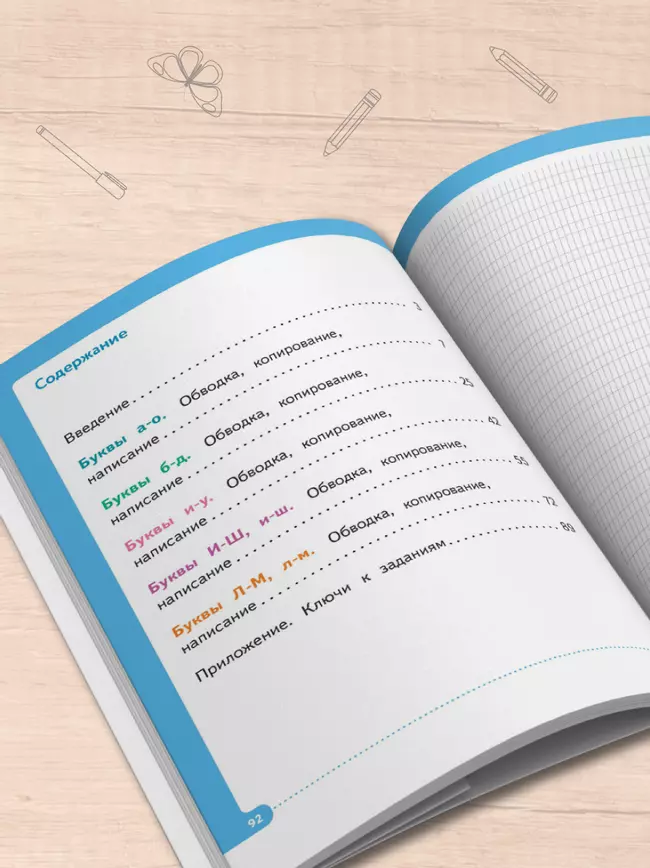 Содержание
Введение . . . . . . . . . . . . . . . . . . . . . . . . . . . . . . 3
Буквы а-о. Обводка, копирование,
написание . . . . . . . . . . . . . . . . . . . . . . . . . . . . . 7
Буквы б-д. Обводка, копирование,
написание . . . . . . . . . . . . . . . . . . . . . . . . . . . . . 25
Буквы и-у. Обводка, копирование,
написание . . . . . . . . . . . . . . . . . . . . . . . . . . . . . 42
Буквы И-Ш, и-ш. Обводка, копирование,
написание . . . . . . . . . . . . . . . . . . . . . . . . . . . . . 55
Буквы Л-М, л-м. Обводка, копирование,
написание . . . . . . . . . . . . . . . . . . . . . . . . . . . . . 72
Приложение. Ключи к заданиям . . . . . . . . . . . 89
92